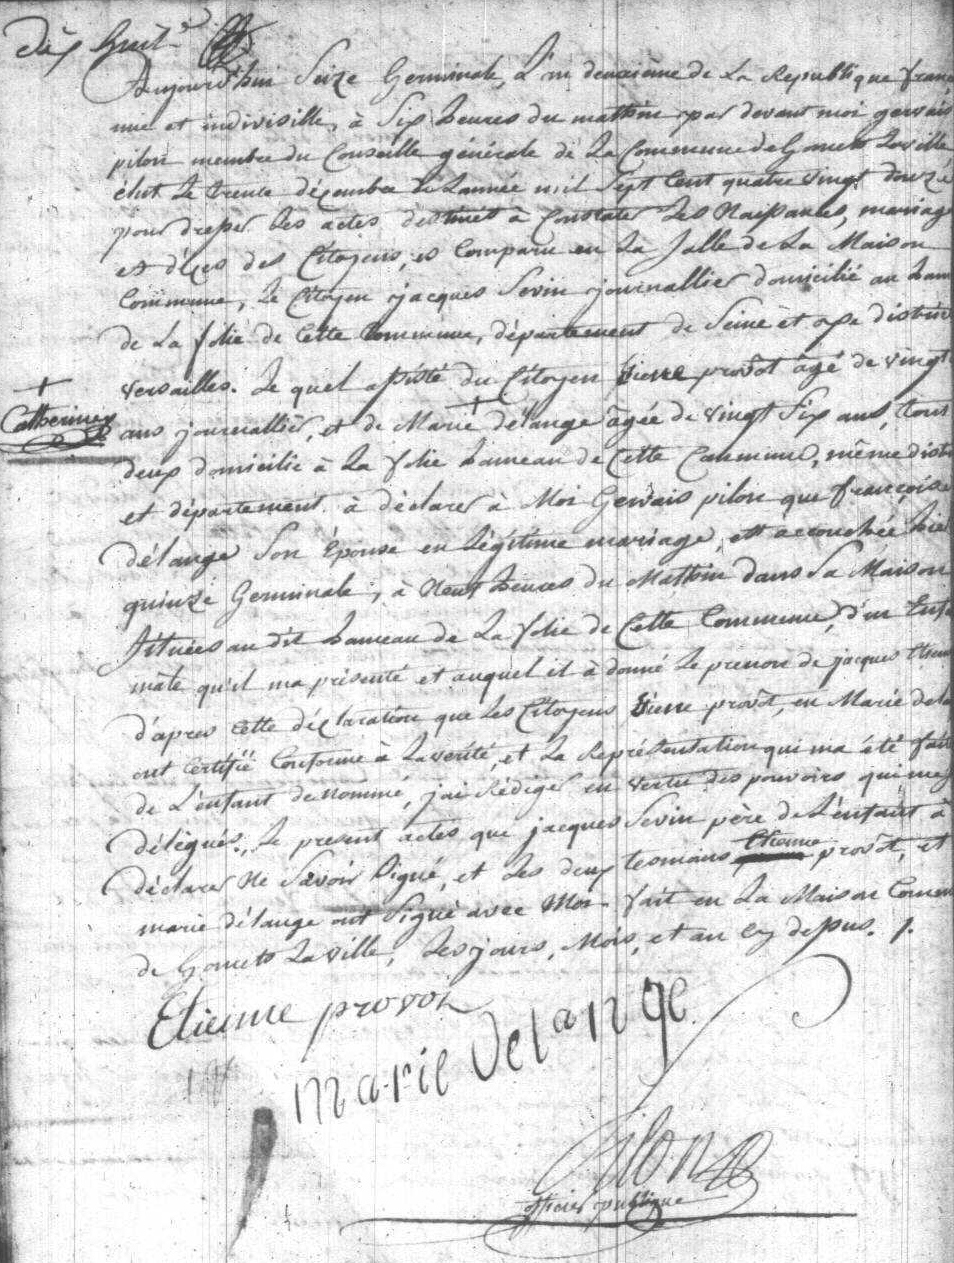 dix huit
Aujourd'huy Seize Germinale, L'an deuxième de La Republique fran
une et indivisille, à Six heures du mattin par devant moi gervais
pilon membre du Conseille générale de La Commune de Gomets Laville
élut Le trente décembre de Lannée mil Sept Cent quatre vingt douze
pour dresser Les actes destinés à Constater Les Naissances, mariage
et décès des Citoyens, es Comparu en La Salle de La Maison
Commune, Le Citoyen jacques Sevin journallier domicilié au ham
de La folie de Cette Commune, département de Seine et oise distric
versailles. Le quel assisté du Citoyen provôt âgé de vingt
+
Catherine
ans journallier, et de Marie + délange âgée de vingt Six ans, tous
deux domicilié à La folie hameau de Cette Commune, même distr
et département à déclarer à Moi Gervais pilon que françoise
délange Son Épouse en Légitime mariage, est accouchée hier
quinze Germinale, à Neuf heures du Matthin dans Sa Maison
Situées au dit hameau de La folie de Cette Commune, d'un Enfa
mâle qu'il ma présenté et auquel il à donné Le prenom de jacques Etienne
d'apres Cette déclaration que Les Citoyens provôt, en Marie dela
ont Certifié Conforme à La verité, et La Représentation qui ma été fait
de L'enfant denommé, jai Rédiger en vertu des pouvoirs qui me
délégués, Le present actes que jacques Sevin père de L'enfant à
déclarer Ne Savoir Signé, et Les deux temoins Etienne provôt, et
marie délange ont Signé avec Moi fait en La Maison Comm
de Gomets La ville, Les jours, Mois, et an Cy dessus. /.
Etienne provot
marie delange
Pilon
officier publique